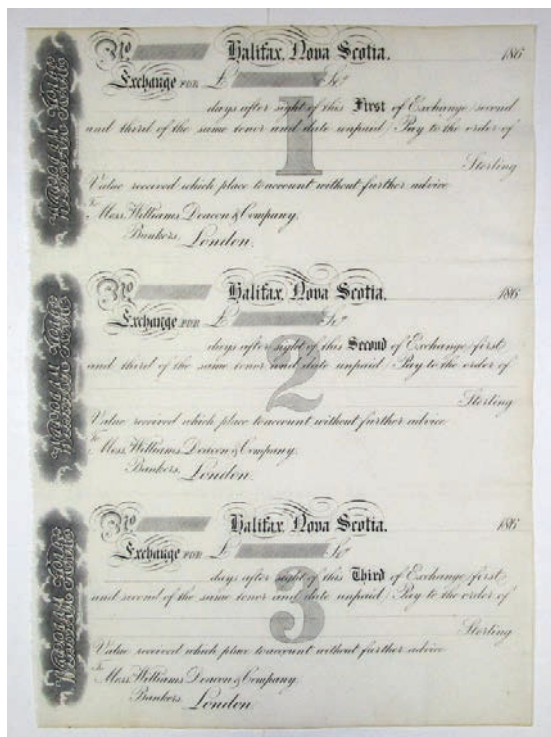 No Halifax, Nova Scotia. 186
Exchange FOR £ Stg
days after sight of this First of Exchange (second
and third of the same tenor and date unpaid) Pay to the order of
1
Sterling
Value received which place to account without further advice
To
Mess. Williams Deacon & Company,
Bankers, London.
No Halifax, Nova Scotia. 186
Exchange FOR £ Stg
days after sight of this Second of Exchange (first
and third of the same tenor and date unpaid) Pay to the order of
2
Sterling
Value received which place to account without further advice
To
Mess. Williams Deacon & Company,
Bankers, London.
No Halifax, Nova Scotia. 186
Exchange FOR £ Stg
days after sight of this Third of Exchange (first
and second of the same tenor and date unpaid) Pay to the order of
3
Sterling
Value received which place to account without further advice
To
Mess. Williams Deacon & Company,
Bankers, London.